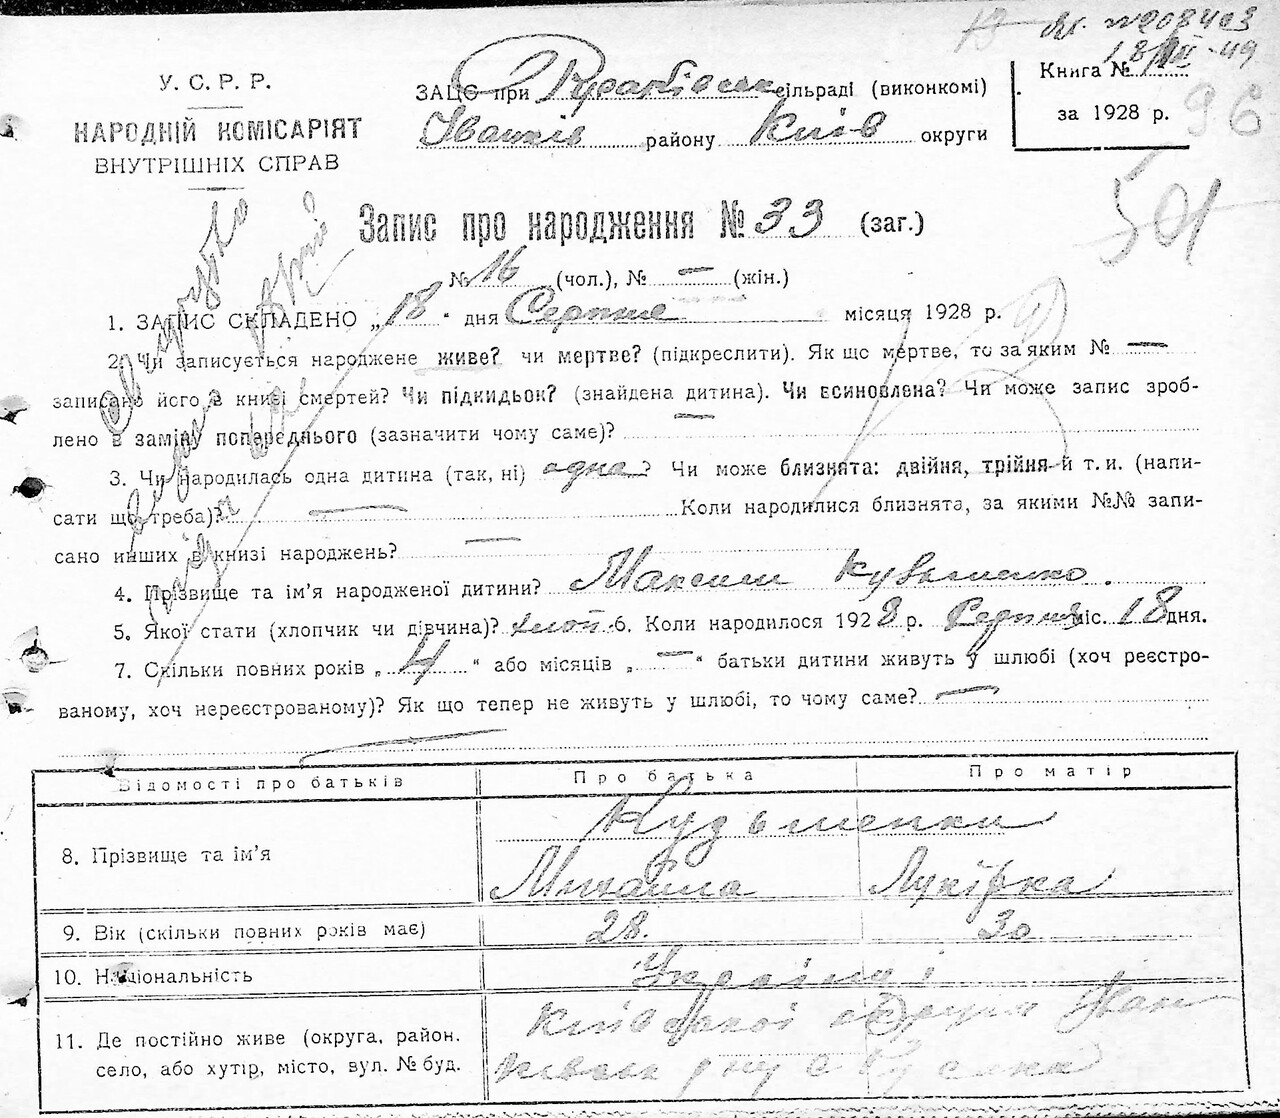 У. С. Р. Р.
НАРОДНІЙ КОМІСАРІЯТ
ВНУТРІШНІХ СПРАВ
ЗАЦС при сільраді (виконкомі)
Іванків району Київ округи
18/XII-49
Книга №
за 1928 р.
96
501
Запис про народження № 33 (заг.)
№ 16 (чол.), № — (жін.)
1. ЗАПИС СКЛАДЕНО „18“ дня Серпня місяця 1928 р.
2. Чи записується народжене живе? чи мертве? (підкреслити). Як що мертве, то за яким № —
записано його в книзі смертей? Чи підкидьок? (знайдена дитина). Чи всиновлена? Чи може запис зроб-
лено в заміну попереднього (зазначити чому саме)? —
3. Чи народилась одна дитина (так, ні) одна? Чи може близнята: двійня, трійня й т. и. (напи-
сати що треба)? — Коли народилися близнята, за якими №№ запи-
сано инших в книзі народжень? —
4. Прізвище та ім’я народженої дитини? Максим Кузьменко.
5. Якої стати (хлопчик чи дівчина)? хлоп. 6. Коли народилося 1928 р. Серпня міс. 18 дня.
7. Скільки повних років „4“ або місяців „—“ батьки дитини живуть у шлюбі (хоч реєстро-
ваному, хоч нереєстрованому)? Як що тепер не живуть у шлюбі, то чому саме? —
Відомості про батьків Про батька Про матір
Кузьменки
8. Прізвище та ім’я
Михайло Лукірка
9. Вік (скільки повних років має) 28. 30
10. Національність Українці
11. Де постійно живе (округа, район, Київської округи Іван
село, або хутір, місто, вул. № буд.